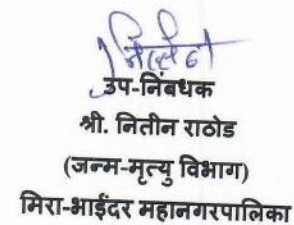 उप-निबंधक
श्री. नितीन राठोड
(जन्म-मृत्यु विभाग)
मिरा-भाईंदर महानगरपालिका